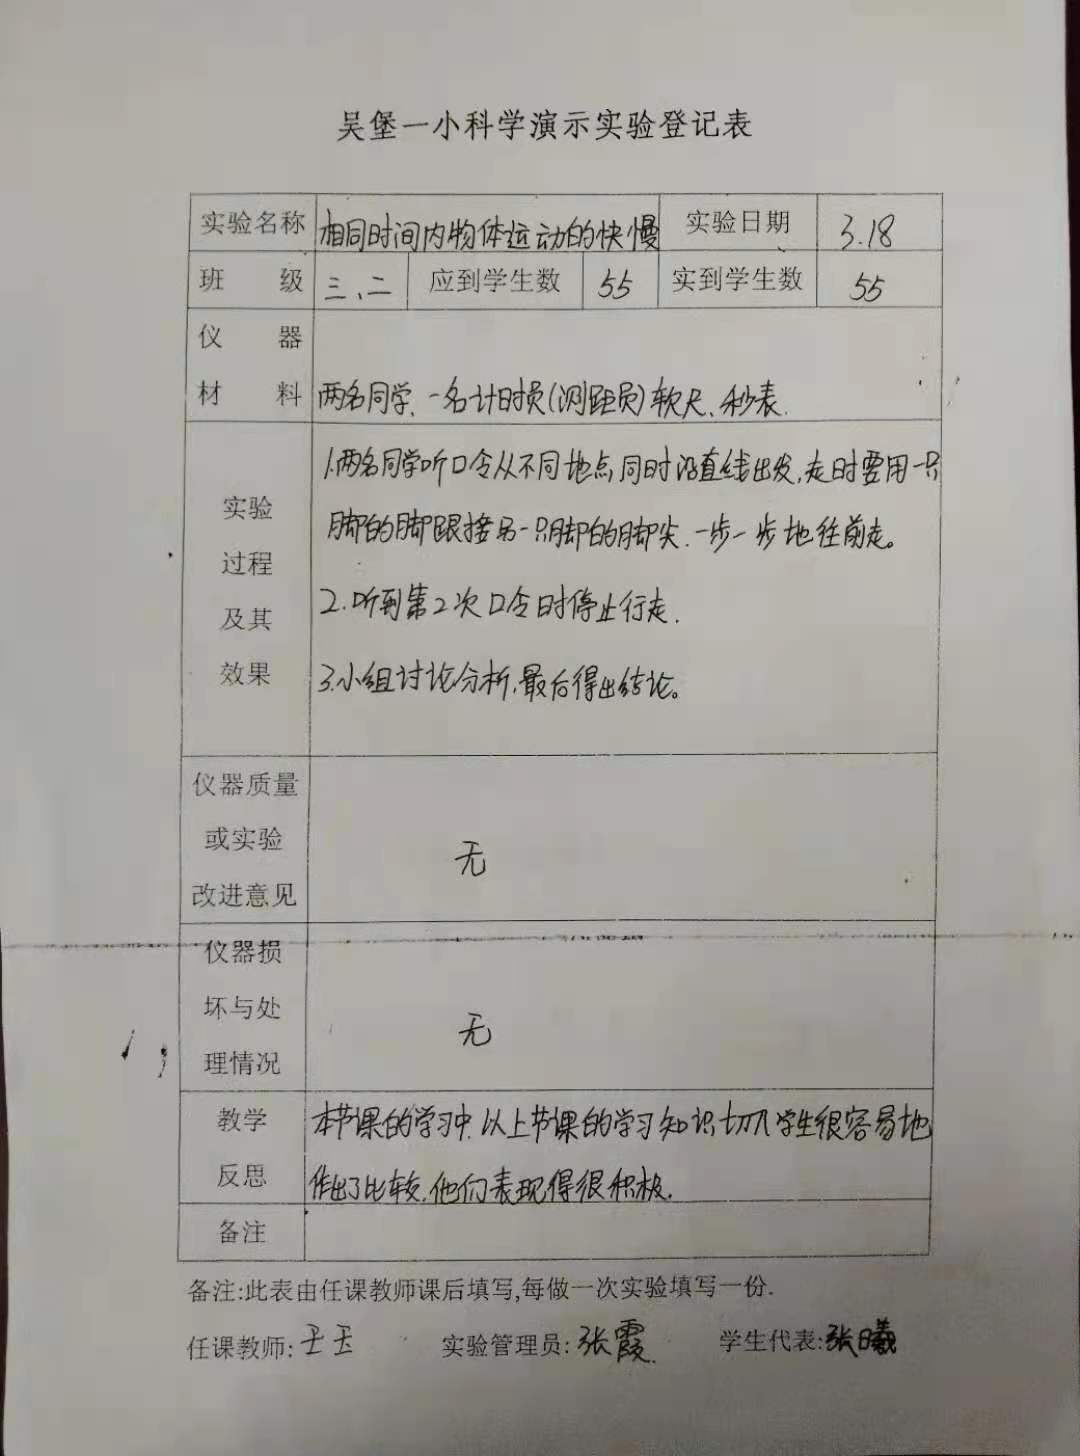 吴堡一小科学演示实验登记表
实验名称 相同时间内物体运动的快慢 实验日期 3.18
班级 三、二 应到学生数 55 实到学生数 55
仪器
材料 两名同学、一名计时员(测距员)软尺、秒表.
1.两名同学听口令从不同地点同时沿直线出发,走时要用一只
实验 脚的脚跟接另一只脚的脚尖.一步一步地往前走。
过程
及其 2.听到第2次口令时停止行走.
效果 3.小组讨论分析,最后得出结论。
仪器质量
或实验 无
改进意见
仪器损
坏与处 无
理情况
教学 本节课的学习中,以上节课的学习知识切入学生很容易地
反思 作出了比较.他们表现得很积极.
备注
备注:此表由任课教师课后填写,每做一次实验填写一份.
任课教师: 王玉 实验管理员:张霞 学生代表:张曦